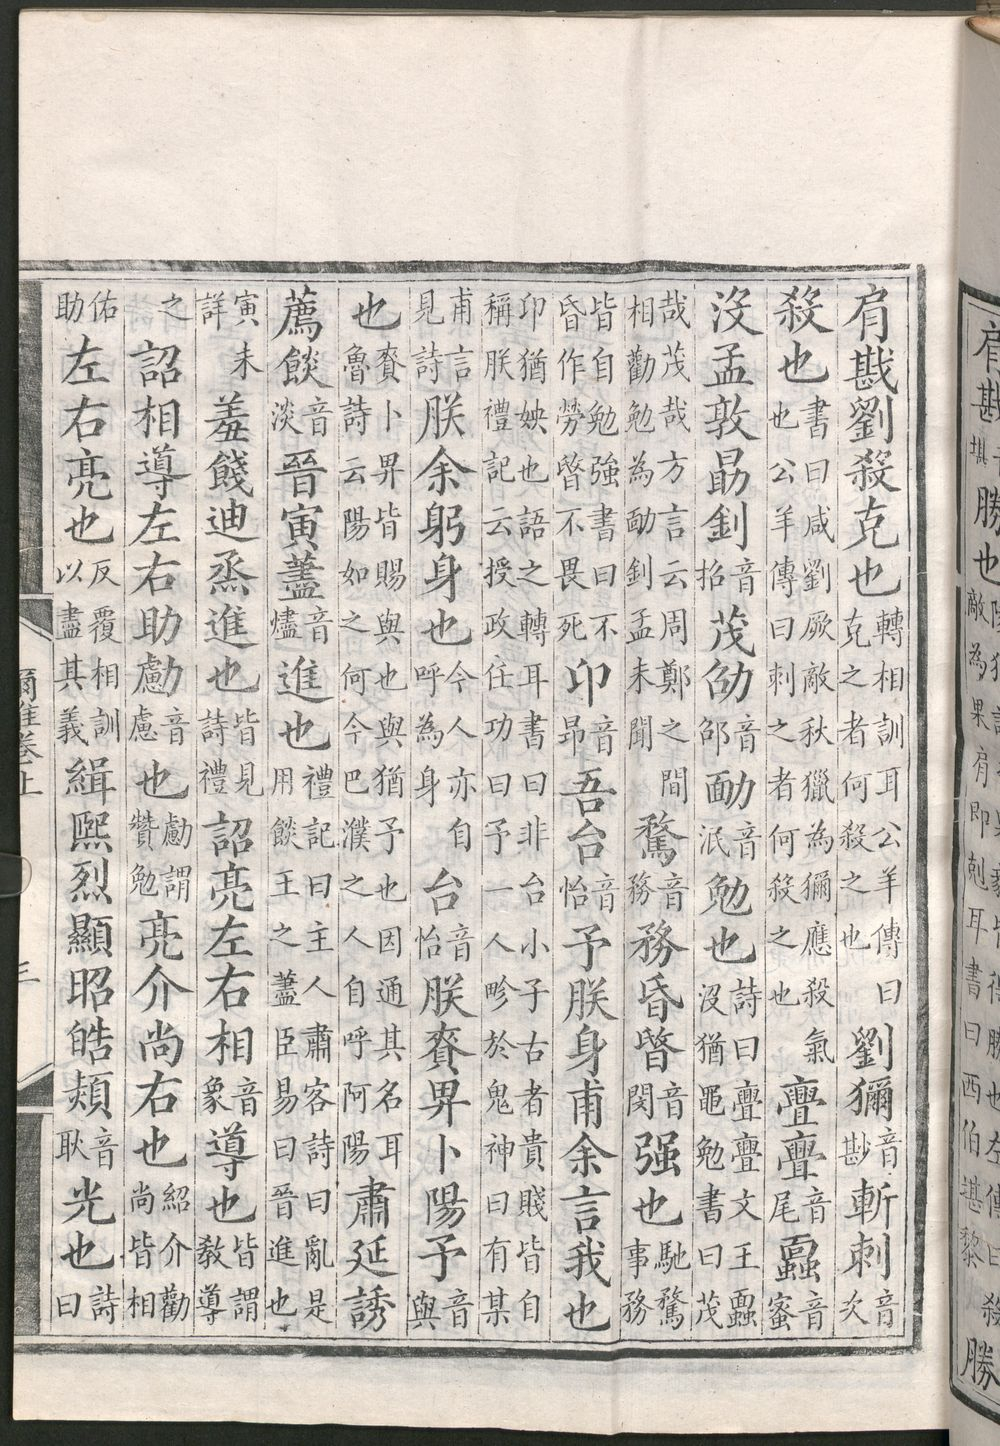 肩戡劉殺克也轉相訓耳公羊傳曰克之者何殺之也劉獮音尟斬刺音次
殺也書曰咸劉厥敵秋獵為獮應殺氣也公羊傳曰刺之者何殺之也亹亹音尾蠠音蜜
沒孟敦勗釗音招茂劭音邵勔音泯勉也詩曰亹亹文王蠠沒猶黽勉書曰茂
哉茂哉方言云周鄭之間相勸勉為勔釗孟未聞騖音務務昏暋音閔强也馳騖事務
皆自勉強書曰不昏作勞暋不畏死卬音昂吾台音怡予朕身甫余言我也
卬猶姎也語之轉耳書曰非台小子古者貴賤皆自稱朕禮記云授政任功曰予一人畛於鬼神曰有某
甫言見詩朕余躬身也今人亦自呼為身台音怡朕賚畀卜陽予音與
也賚卜畀皆賜與也與猶予也因通其名耳魯詩云陽如之何今巴濮之人自呼阿陽肅延誘
薦餤音淡晉寅藎音燼進也禮記曰主人肅客詩曰亂是用餤王之藎臣易曰晉進也
寅未詳羞餞迪烝進也皆見詩禮詔亮左右相音象導也皆謂教導
之詔相導左右助勴音慮也勴謂贊勉亮介尚右也紹介勸尚皆相
佑助左右亮也反覆相訓以盡其義緝熙烈顯昭皓熲音耿光也詩曰
爾雅卷上
三